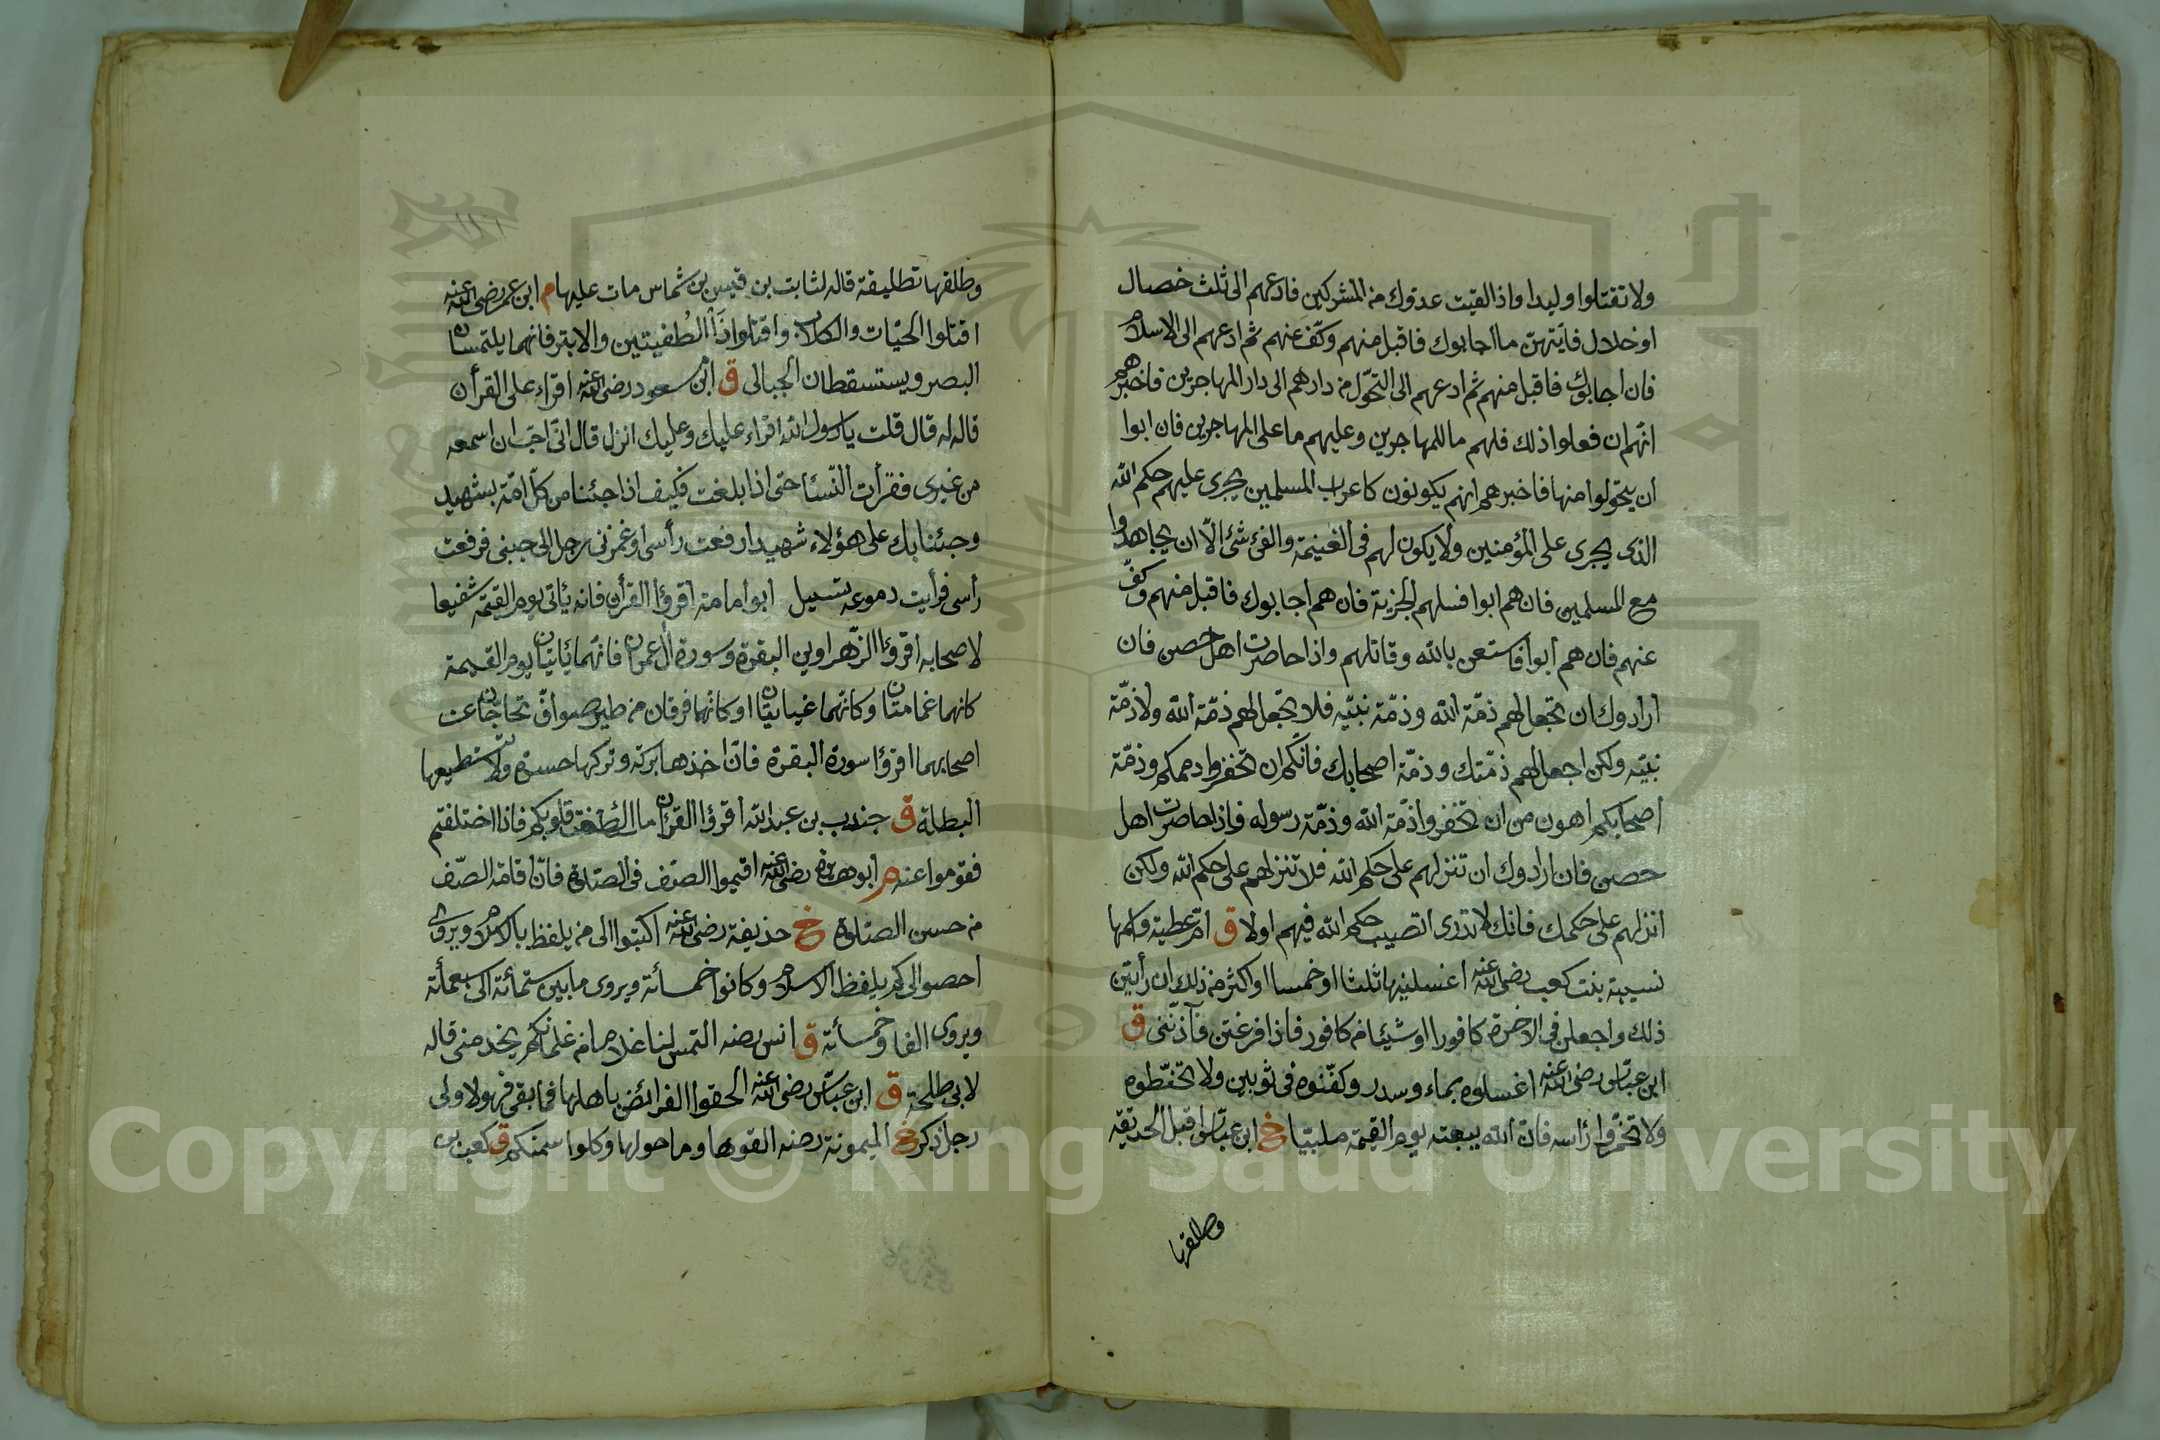 ولا تقتلوا وليدا واذا لقيت عدوك من المشركين فادعهم الى ثلث خصال
او خلال فايتهن ما اجابوك فاقبل منهم وكف عنهم ثم ادعهم الى الاسلام
فان اجابوك فاقبل منهم ثم ادعهم الى التحول من دارهم الى دار المهاجرين فاخبرهم
انهم ان فعلوا ذلك فلهم ما للمهاجرين وعليهم ما على المهاجرين فان ابوا
ان يتحولوا منها فاخبرهم انهم يكونون كاعراب المسلمين يجرى عليهم حكم الله
الذى يجرى على المؤمنين ولا يكون لهم فى الغنيمة والفئ شئ الا ان يجاهدوا
مع المسلمين فان هم ابوا فسلهم الجزية فان هم اجابوك فاقبل منهم وكف
عنهم فان هم ابوا فاستعن بالله وقاتلهم واذا حاصرت اهل حصن فان
ارادوك ان تجعل لهم ذمة الله وذمة نبيه فلا تجعل لهم ذمة الله ولا ذمة
نبيه ولكن اجعل لهم ذمتك وذمة اصحابك فانكم ان تخفروا ذممكم وذمة
اصحابكم اهون من ان تخفروا ذمة الله وذمة رسوله واذا حاصرت اهل
حصن فان ارادوك ان تنزلهم على حكم الله فلا تنزلهم على حكم الله ولكن
انزلهم على حكمك فانك لا تدرى اتصيب حكم الله فيهم اولا ق ام عطية واسمها
نسيبة بنت كعب رضى الله عنه اغسلنها ثلثا او خمسا او اكثر من ذلك ان رأيتن
ذلك واجعلن فى الاخرة كافورا او شيئا من كافور فاذا فرغتن فآذننى ق
ابن عباس رضى الله عنه اغسلوه بماء وسدر وكفنوه فى ثوبين ولا تحنطوه
ولا تخمروا رأسه فان الله يبعثه يوم القيمة ملبيا خ ابن عباس اقبل الحديقة
وطلقها
وطلقها تطليقة قاله لثابت بن قيس بن شماس مات عليها م ابن عمر رضى الله عنه
اقتلوا الحيات والكلاب واقتلوا ذا الطفيتين والابتر فانهما يلتمسان
البصر ويستسقطان الحبالى ق ابن مسعود رضى الله عنه اقراء على القرأن
قاله له قال قلت يا رسول الله اقراء عليك وعليك انزل قال انى احب ان اسمعه
من غيرى فقرأت النساء حتى اذا بلغت فكيف اذا جئنا من كل امة بشهيد
وجئنا بك على هؤلاء شهيدا رفعت رأسى او غمزنى رجل الى جنبى فرفعت
رأسى فرأيت دموعه تسيل ابو امامة اقرؤا القرأن فانه يأتى يوم القيمة شفيعا
لاصحابه اقرؤا الزهراوين البقرة وسورة ال عمران فانهما يأتيان يوم القيمة
كانهما غمامتان وكانهما غيايتان او كانهما فرقان من طير صواف تحاجان عن
اصحابهما اقرؤا سورة البقرة فان اخذها بركة وتركها حسرة ولا تستطيعها
البطلة ق جندب بن عبد الله اقرؤا القرأن ما ائتلفت قلوبكم فاذا اختلفتم
فقوموا عنه م ابو هريرة رضى الله عنه اقيموا الصف فى الصلوة فان اقامة الصف
من حسن الصلوة خ حذيفة رضى الله عنه اكتبوا الى من يلفظ بالاسلام ويروى
احصوا لى كم يلفظ الاسلام وكانوا خمسمائة ويروى ما بين ستمائة الى سبعمائة
ويروى الفا وخمسمائة ق انس رضه التمس لنا غلاما من غلمانكم يخدمنى قاله
لابى طلحة ق ابن عباس رضى الله عنه الحقوا الفرائض باهلها فما بقى فهو لاولى
رجل ذكر خ الميمونة رضه القوها وما حولها وكلوا سمنكم ق كعب بن
Copyright © King Saud University